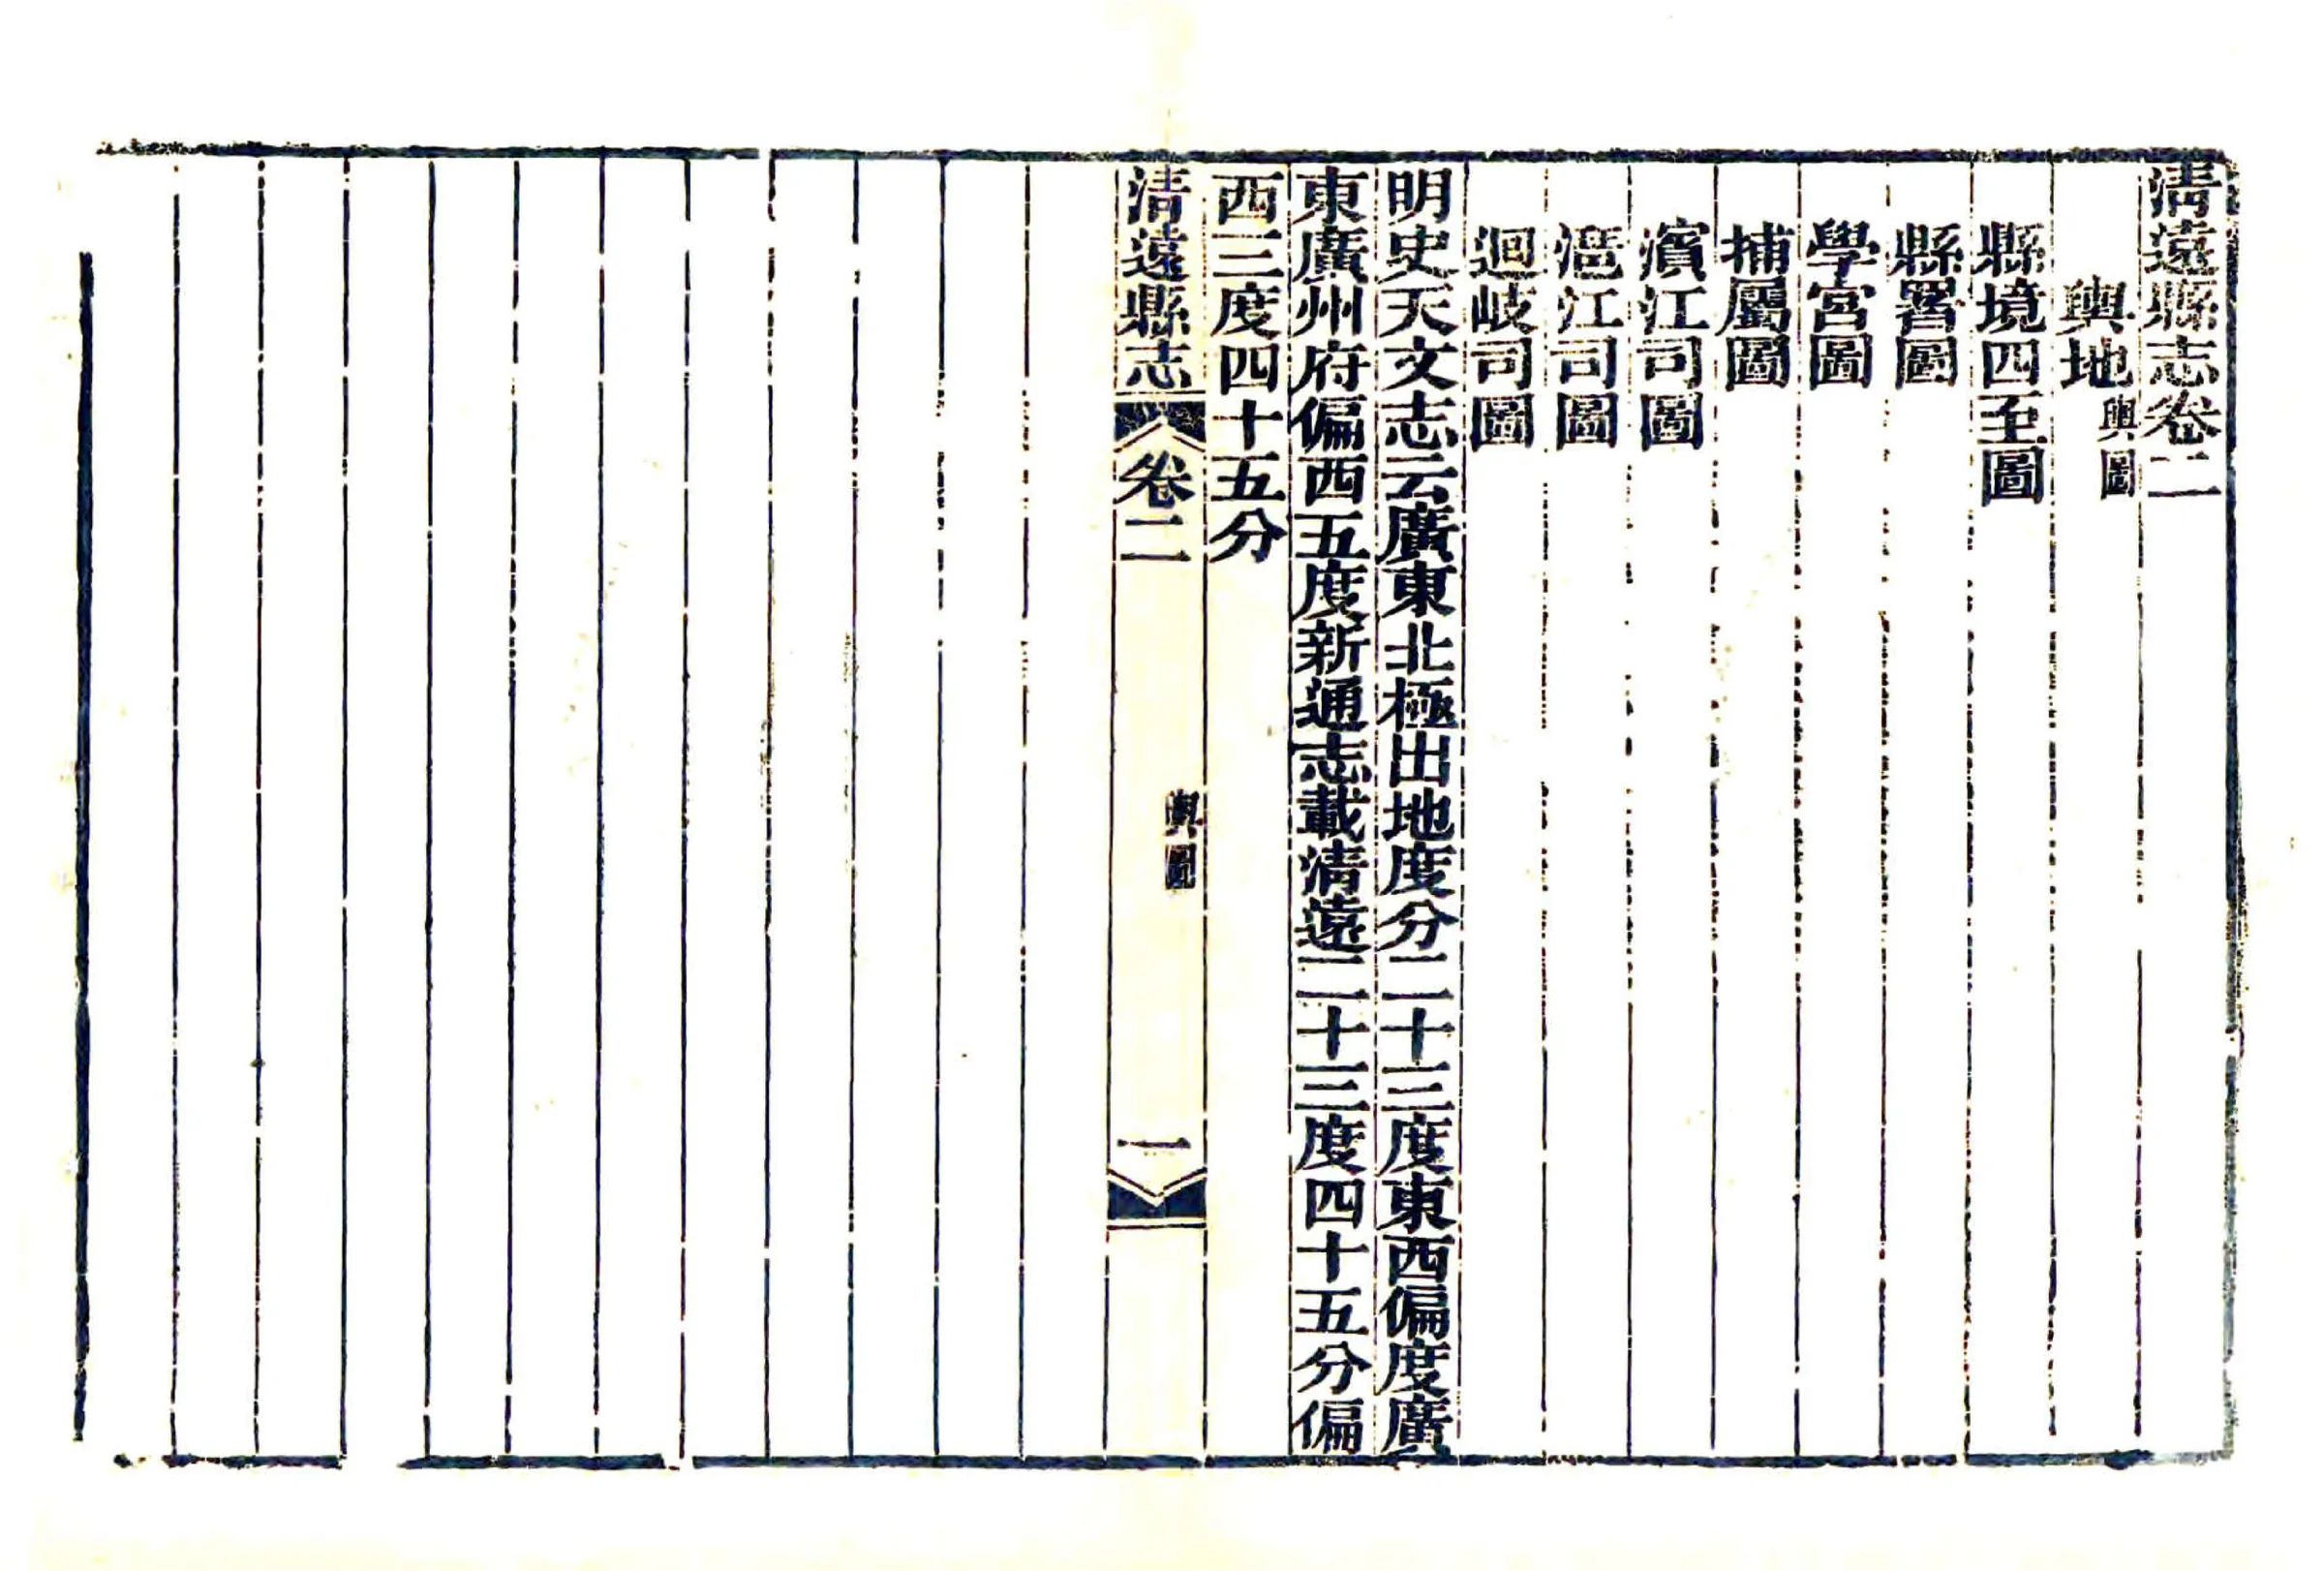 清遠縣志卷二
輿地 輿圖
縣境四至圖
縣署圖
學宮圖
捕屬圖
濱江司圖
潖江司圖
迴岐司圖
明史天文志云廣東北極出地度分二十三度東西偏度廣
東廣州府偏西五度新通志載清遠二十三度四十五分偏
西三度四十五分
清遠縣志 卷二 輿圖 一